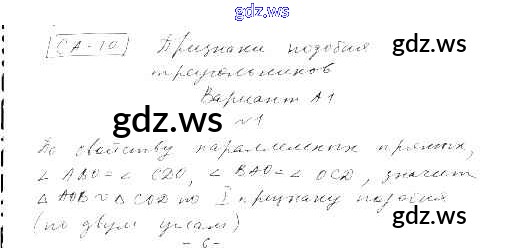 gdz.ws
СА-10 Признаки подобия gdz.ws
треугольников
Вариант А1
gdz.ws
№1
По свойству параллельных прямых,
∠ ABO = ∠ CDO, ∠ BAO = ∠ OCD, значит
△ AOB ~ △ COD по I признаку подобия
(по двум углам) gdz.ws
- 6 -